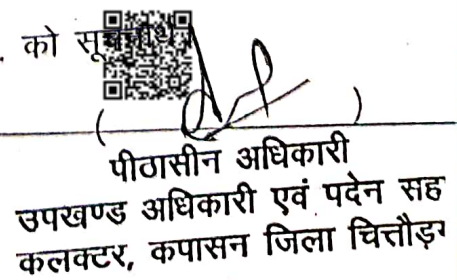 . को सूचनार्थ।
( )
पीठासीन अधिकारी
उपखण्ड अधिकारी एवं पदेन सह
कलक्टर, कपासन जिला चित्तौड़ग